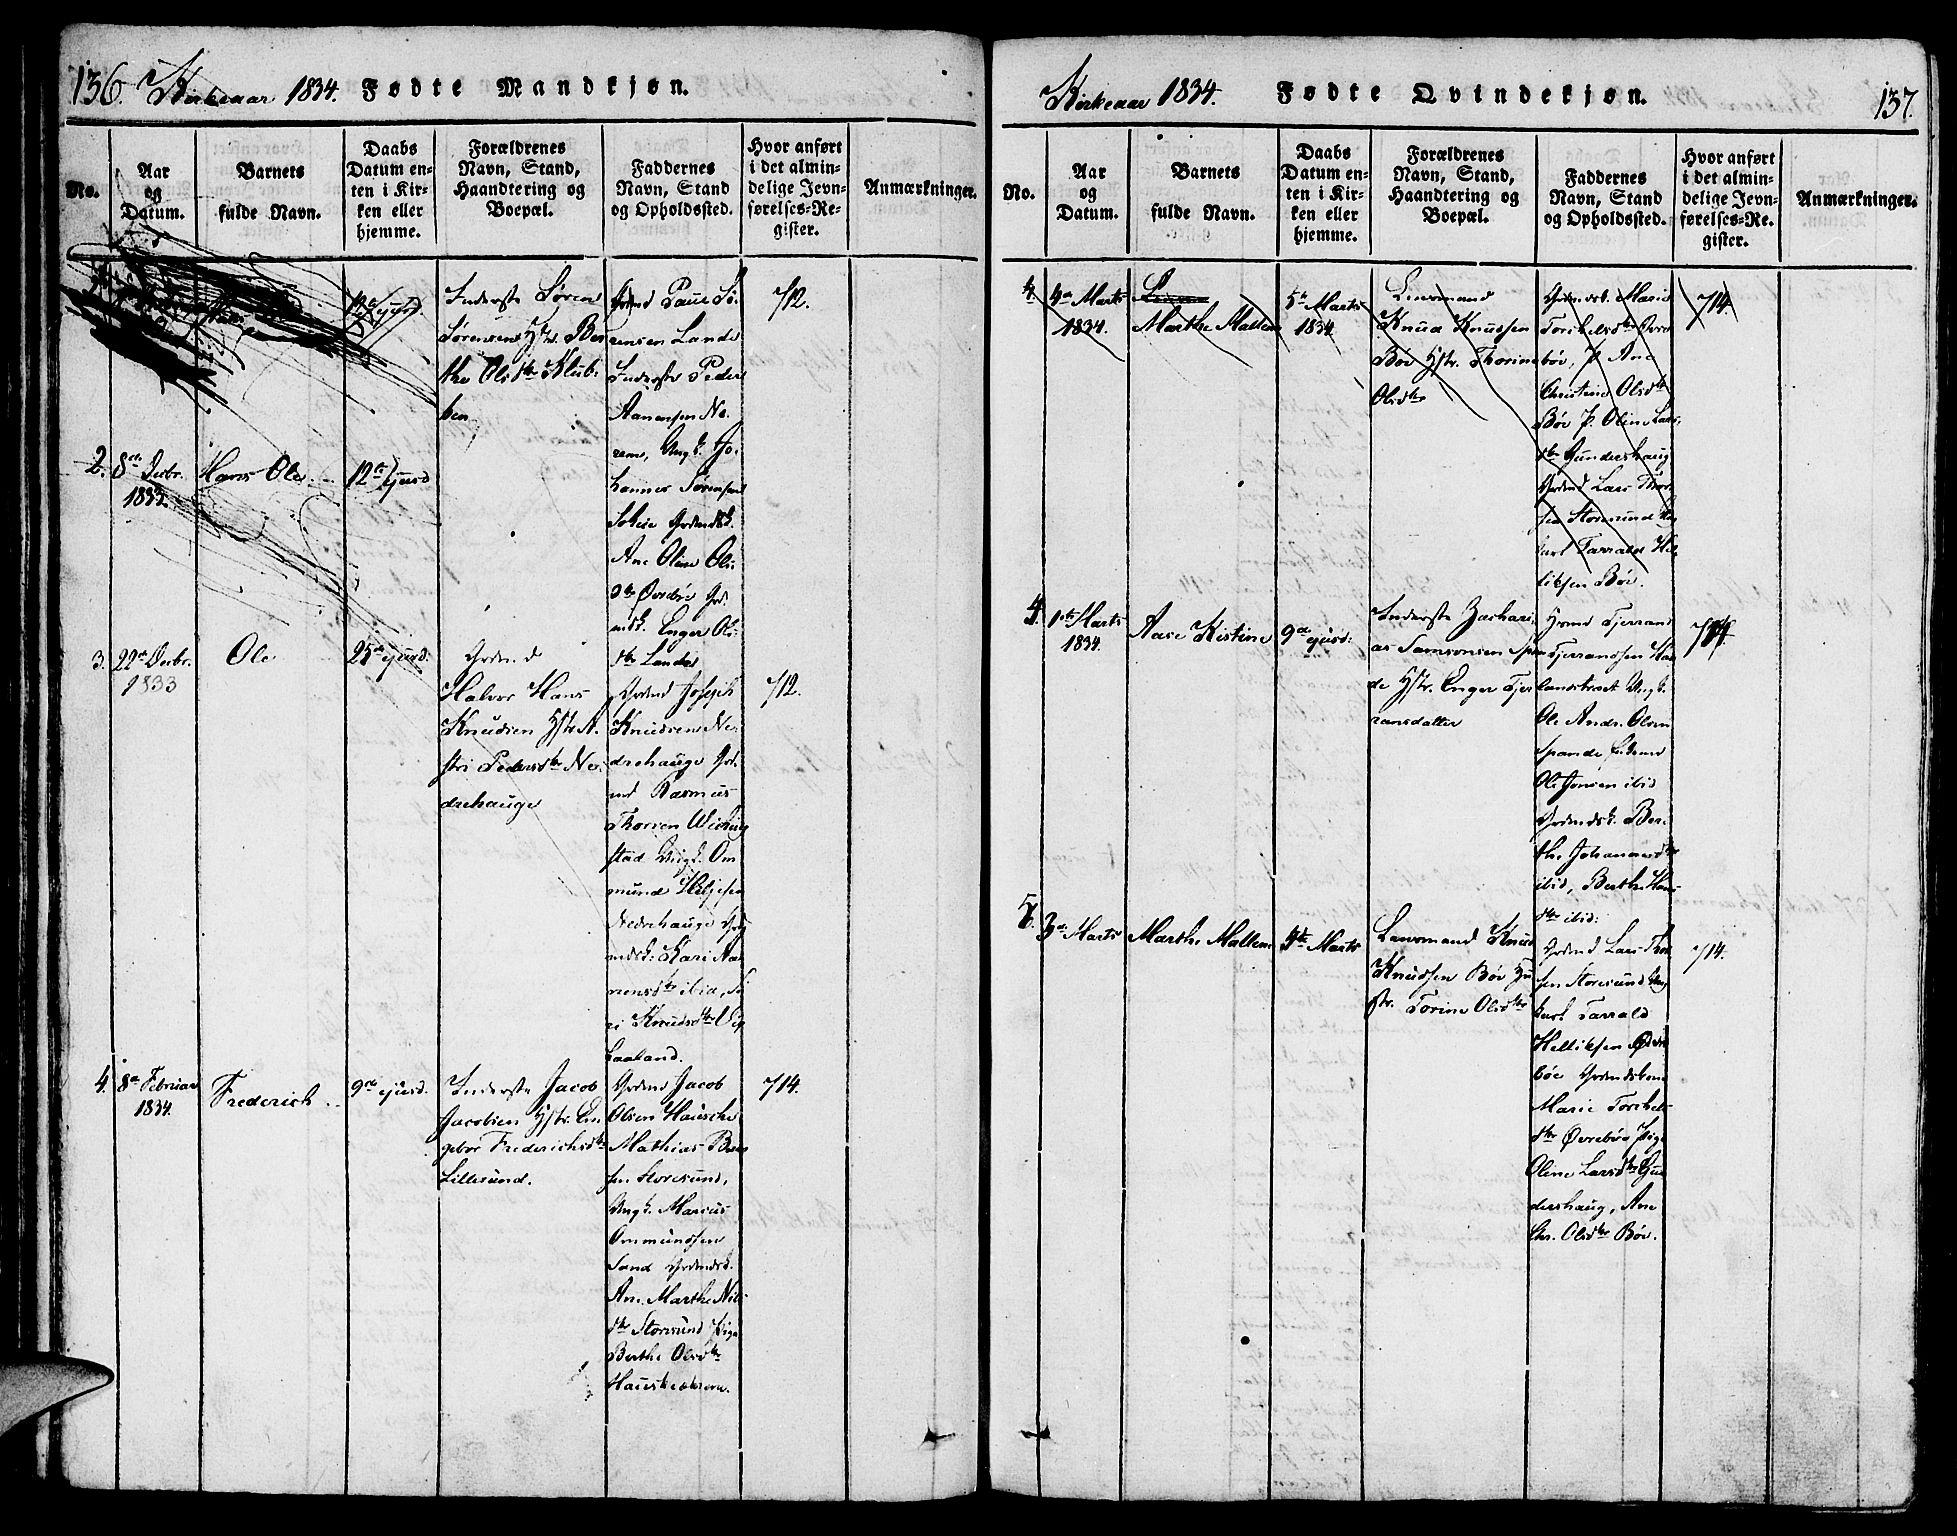 136. Kirkeaar 1834. Fødte Mandkjøn.
No.
Aar
og
Datum.
Barnets
fulde Navn.
Daabs
Datum en-
ten i Kir-
ken eller
hjemme.
Forældrenes
Navn, Stand,
Haandtering og
Boepæl.
Faddernes
Navn, Stand
og Opholdssted.
Hvor anført
i det almin-
delige Jevn-
førelses-Re-
gister.
Anmærkninger.
Inderste Søren
Sørensen Hstr. Ber
the Olsdtr Klub-
ben
Grdmd Paul Sø-
rensen Lande
Inderste Peder
Aanensen Ne-
rem, Ungk. Jo-
hannes Sørensen
Soleie Grdmdsk.
Ane Oline Ols-
dtr Øvrebø Grd-
mdsk. Enger Ols-
dtr Lande
712.
2. 8de Decbr.
1833.
Hans Ole
12te ejusd
3. 22de Decbr.
1833
Ole
25de ejusd.
Grdm.d
Halvor Hans
Knudsen Hstr A-
stri Pedersdtr Ne-
drehauge
Grdmd Joseph
Knudsen Ne-
drehauge Grd-
md Rasmus
Thorsen Wiching
stad Ungk. Om
mund Heljesen
Nedrehauge Grd
mdsk: Kari Aa
nensdtr ibid, Si
ri Knudsdtr Vig
Laaland.
712.
4. 8de Februar
1834.
Frederich
9de ejusd.
Inderste Jacob
Jacobsen Hstr. En
gebor Frederichsdtr
Lillesund.
Grdmd Jacob
Olsen Hauske
Mathias Been
sen Storesund,
Ungk. Marcus
Ommundsen
Sand Grdmdsk.
Ane Marthe Nils
dtr Storesund Pige
Berthe Olsdtr
Hauskeskeene.
714.
Kirkeaar 1834. Fødte Qvindekjøn. 137.
No.
Aar
og
Datum.
Barnets
fulde Navn.
Daabs
Datum en-
ten i Kir-
ken eller
hjemme.
Forældrenes
Navn, Stand,
Haandtering og
Boepæl.
Faddernes
Navn, Stand
og Opholdssted.
Hvor anført
i det almin-
delige Jevn-
førelses-Re-
gister.
Anmærkninger.
4. 4de Marts
1834.
Marthe Mallene
5te Marts
1834
Lensmand
Knud Knudsen
Bøe Hstr. Thorine
Olsdtr
Grdmdsk. Marie
Torkelsdtr Øvre
bøe, P. Ane
Christine Olsdtr
Bøe P. Oline Lars-
dtr Gundershaug
Grdmd Lars Thor
sen Storesund Ung
karl Tarrald Hel
liksen Bøe.
714.
4. 1ste Marts
1834.
Aase Kistine
9de ejusd:
Inderste Zachari-
as Samsonsen Span
de Hstr. Enger Tjer
ransdatter
Grmd Tjerrand
Tjerrandsen Haa
landstræet Ungk.
Ole Andr. Olsen
Spande Inderst
Ole Jonsen ibid
Grdmdsk. Ber-
the Johannesdtr
ibid, Berthe Hans
dtr ibid:
714
5. 3de Marts
Marthe Mallene
5te Marts
Lensmand Knud
Knudsen Bøe Hu
str. Torine Olsdtr
Grdmd Lars Thor
sen Storesund Ung
karl Tarrald
Helliksen Øvre
bøe Grdmdskone
Marie Torkels
dtr Øvrebøe Pige
Oline Larsdtr Gun
dershaug, Ane
Chr. Olsdtr Bøe.
714.